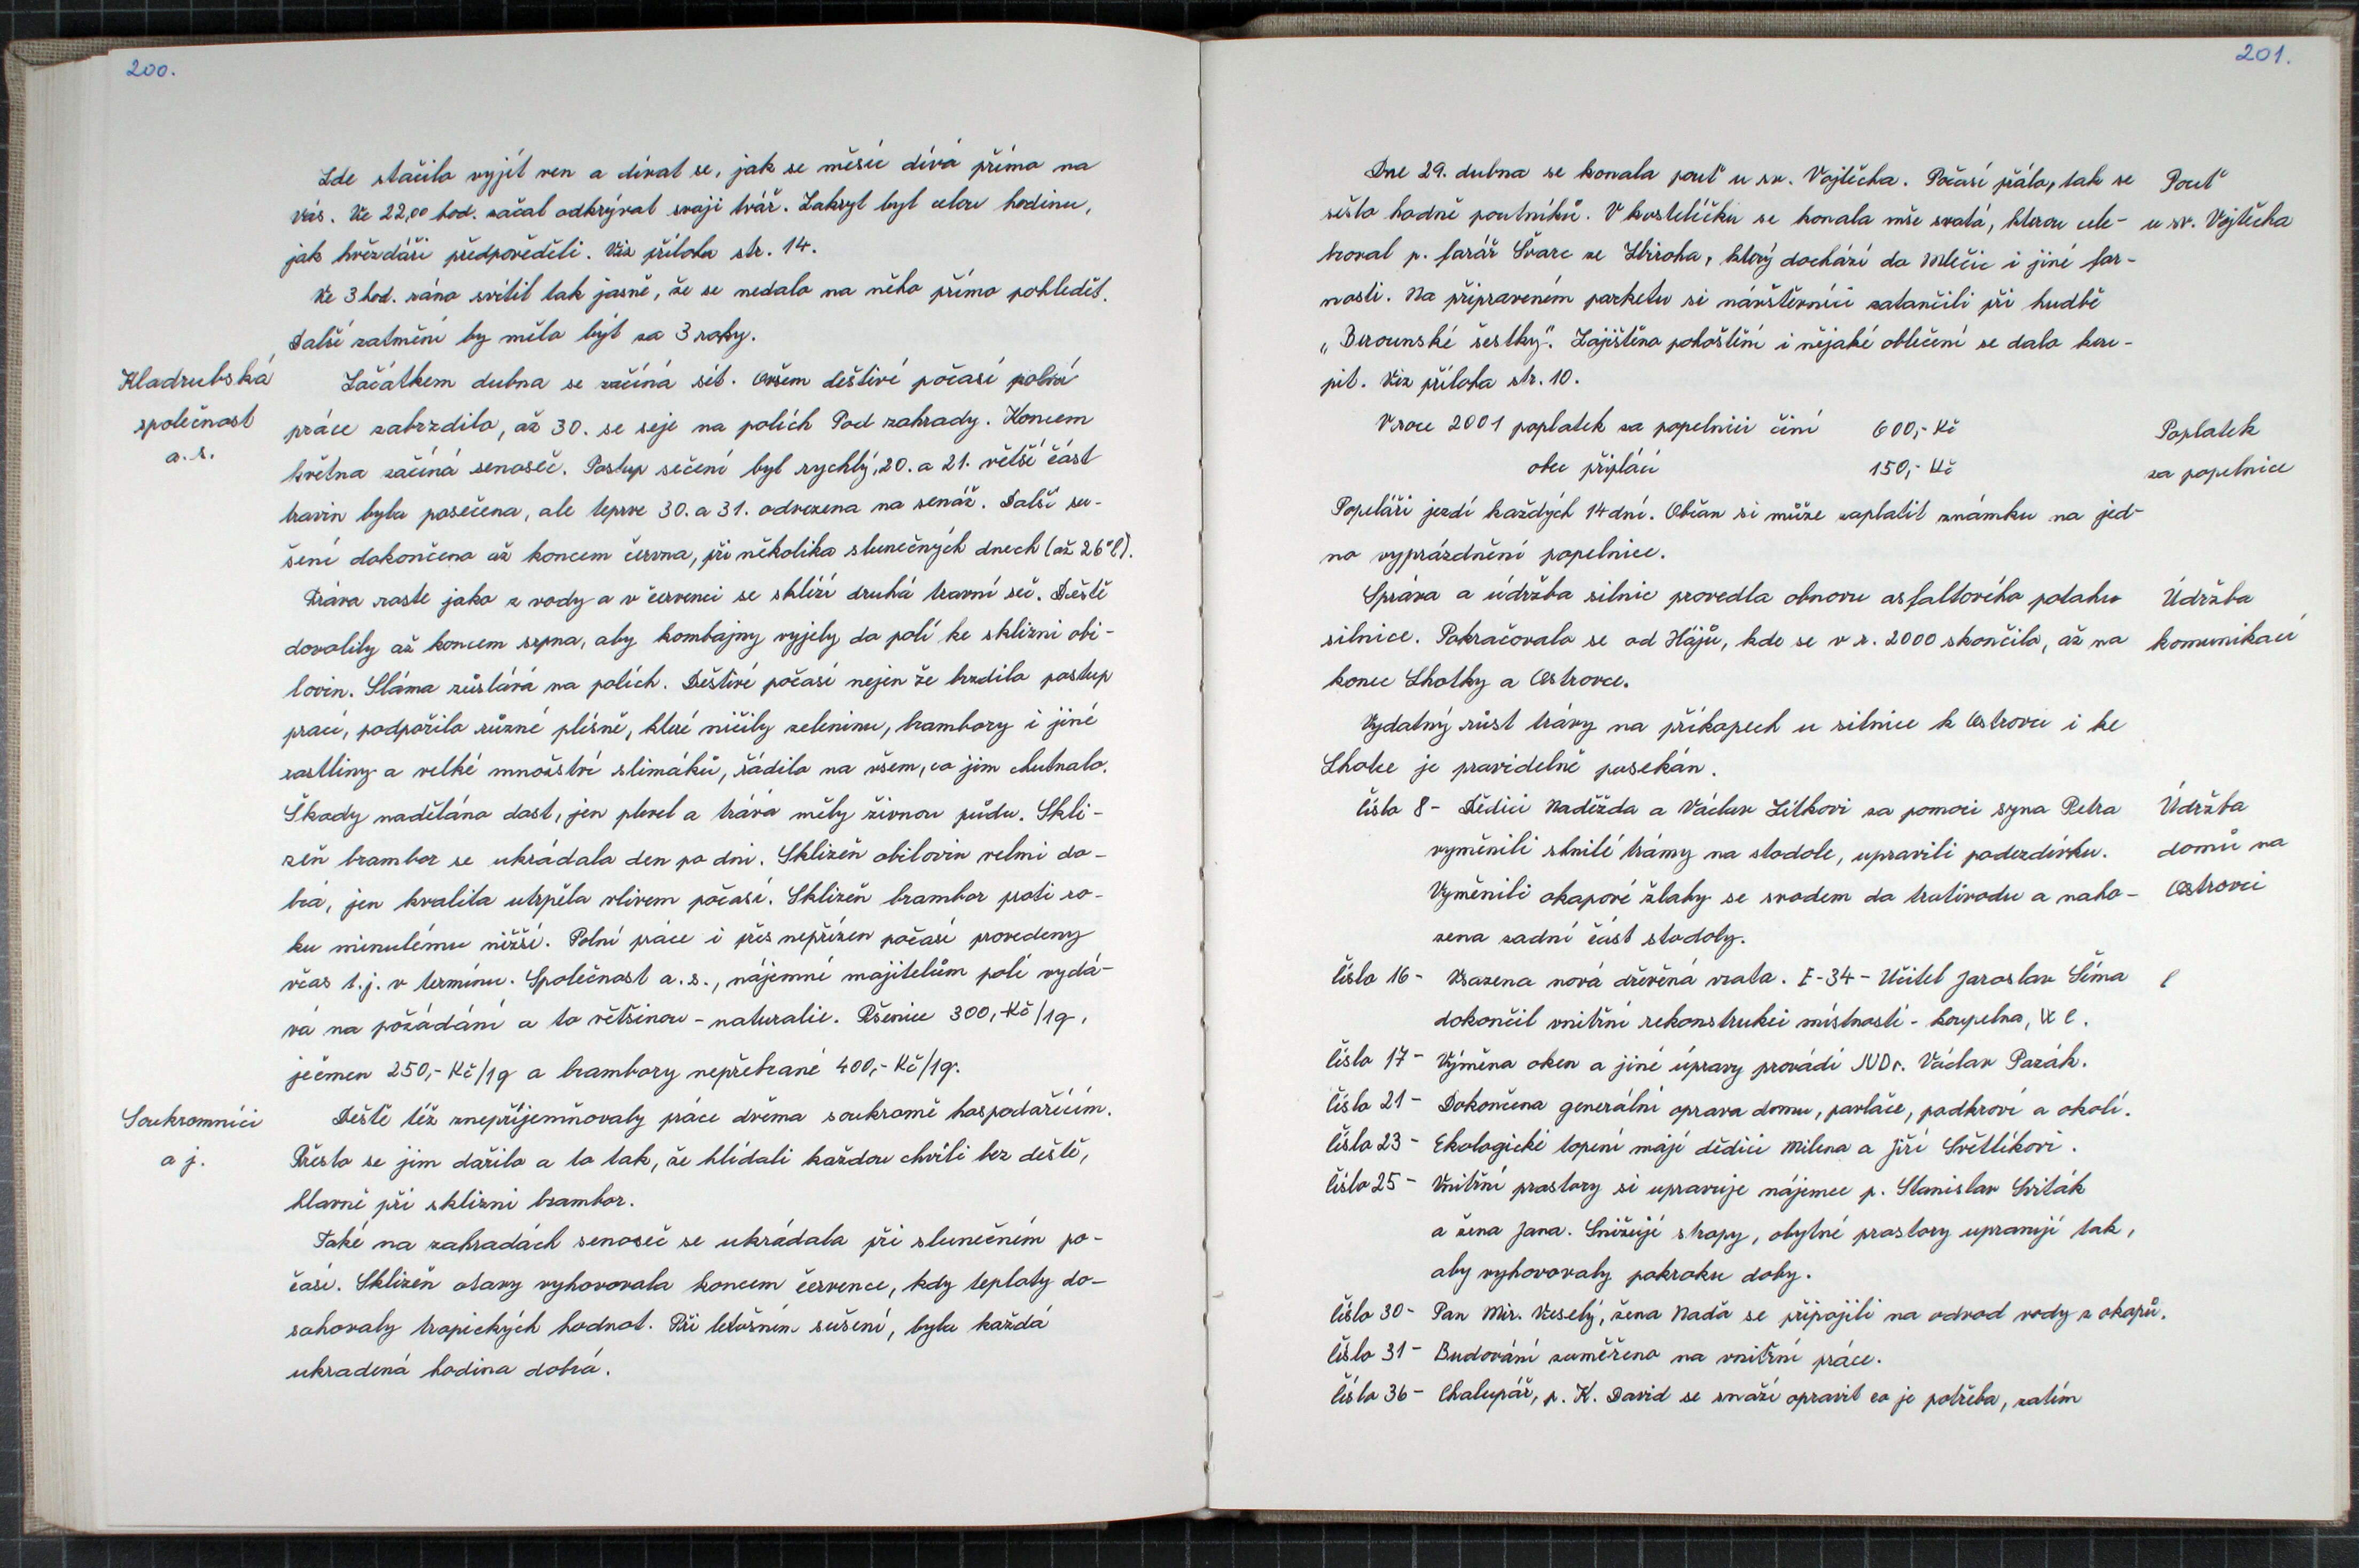 200.
Zde stačilo vyjít ven a dívat se, jak se měsíc dívá přímo na
vás. Ve 22,00 hod. začal odkrývat svoji tvář. Zakryt byl celou hodinu,
jak hvězdáři předpověděli. Viz příloha str. 14.
Ve 3 hod. ráno svítil tak jasně, že se nedalo na něho přímo pohledět.
Další zatmění by mělo být za 3 roky.
Kladrubská
společnost
a. s.
Začátkem dubna se začíná sít. Ovšem deštivé počasí polní
práce zabrzdilo, až 30. se seje na polích Pod zahrady. Koncem
května začíná senoseč. Postup sečení byl rychlý, 20. a 21. větší část
travin byla posečena, ale teprve 30. a 31. odvezena na senáž. Další su-
šení dokončeno až koncem června, při několika slunečných dnech (až 26°C).
Tráva roste jako z vody a v červenci se sklízí druhá travní seč. Deště
dovolily až koncem srpna, aby kombajny vyjely do polí ke sklizni obi-
lovin. Sláma zůstává na polích. Deštivé počasí nejen že brzdilo postup
prací, podpořilo různé plísně, které ničily zeleninu, brambory i jiné
rostliny a velké množství slimáků, řádilo na všem, co jim chutnalo.
Škody naděláno dost, jen plevel a tráva měly živnou půdu. Skli-
zeň brambor se ukrádala den po dni. Sklizeň obilovin velmi do-
brá, jen kvalita utrpěla vlivem počasí. Sklizeň brambor proti ro-
ku minulému nižší. Polní práce i přes nepřízeň počasí provedeny
včas t.j. v termínu. Společnost a. s., nájemné majitelům polí vydá-
vá na požádání a to většinou - naturalie. Pšenice 300,- Kč/1q,
ječmen 250,- Kč/1q a brambory nepřebrané 400,- Kč/1q.
Soukromníci
a j.
Deště též znepříjemňovaly práce dvěma soukromě hospodařícím.
Přesto se jim dařilo a to tak, že hlídali každou chvíli bez deště,
hlavně při sklizni brambor.
Také na zahradách senoseč se ukrádala při slunečném po-
časí. Sklizeň otavy vyhovovala koncem července, kdy teploty do-
sahovaly tropických hodnot. Při letošním sušení, byla každá
ukradená hodina dobrá.
201.
Dne 29. dubna se konala pouť u sv. Vojtěcha. Počasí přálo, tak se
sešlo hodně poutníků. V kostelíčku se konala mše svatá, kterou cele-
broval p. farář Švarc ze Zbiroha, který dochází do Mlečic i jiné far-
nosti. Na připraveném parketu si návštěvníci zatančili při hudbě
„Berounské šestky". Zajištěno pohoštění i nějaké oblečení se dalo kou-
pit. Viz příloha str. 10.
Pouť
u sv. Vojtěcha
V roce 2001 poplatek za popelnici činí 600,- Kč
obec připlácí 150,- Kč
Popeláři jezdí každých 14 dní. Občan si může zaplatit známku na jed-
no vyprázdnění popelnice.
Poplatek
za popelnice
Správa a údržba silnic provedla obnovu asfaltového potahu
silnice. Pokračovalo se od Hájů, kde se v r. 2000 skončilo, až na
konec Lhotky a Ostrovce.
Údržba
komunikací
Vydatný růst trávy na příkopech u silnice k Ostrovci i ke
Lhotce je pravidelně posekán.
číslo 8 - Dědici Naděžda a Václav Lítkovi za pomoci syna Petra
vyměnili shnilé trámy na stodole, upravili podezdívku.
Vyměnili okapové žlaby se svodem do trativodu a naho-
zena zadní část stodoly.
Údržba
domů na
Ostrovci
číslo 16 - Vsazena nová dřevěná vrata. E-34 - Učitel Jaroslav Síma
dokončil vnitřní rekonstrukci místností - koupelna, W C.
číslo 17 - Výměna oken a jiné úpravy provádí JUDr. Václav Pazák.
číslo 21 - Dokončena generální oprava domu, pavlače, podkroví a okolí.
číslo 23 - Ekologické topení mají dědici Milena a Jiří Světlíkovi.
číslo 25 - Vnitřní prostory si upravuje nájemce p. Stanislav Sviták
a žena Jana. Snižují stropy, obytné prostory upravují tak,
aby vyhovovaly pokroku doby.
číslo 30 - Pan Mir. Veselý, žena Naďa se připojili na odvod vody z okapů.
číslo 31 - Budování zaměřeno na vnitřní práce.
číslo 36 - Chalupář, p. K. David se snaží opravit co je potřeba, zatím